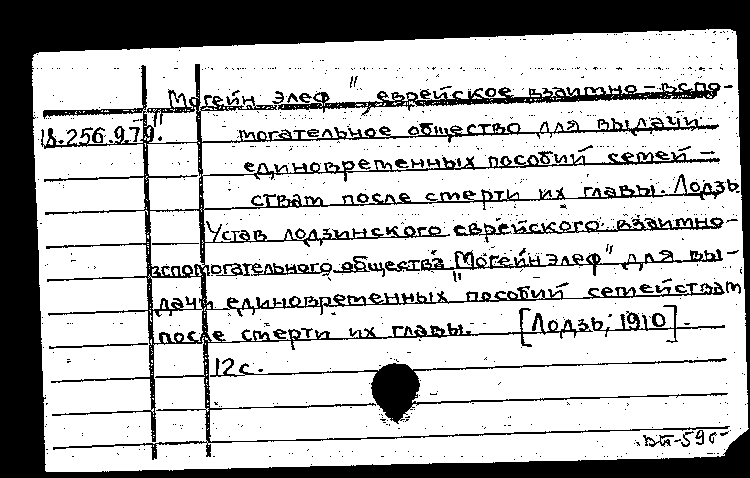 „Могейн элеф", еврейское взаимно-вспо-
18.256.9.79. могательное общество для выдачи
единовременных пособий семей-
ствам после смерти их главы. Лодзь
Устав лодзинского еврейского взаимно-
вспомогательного общества „Могейн элеф" для вы-
дачи единовременных пособий семействам
после смерти их главы. [Лодзь, 1910].
12с.